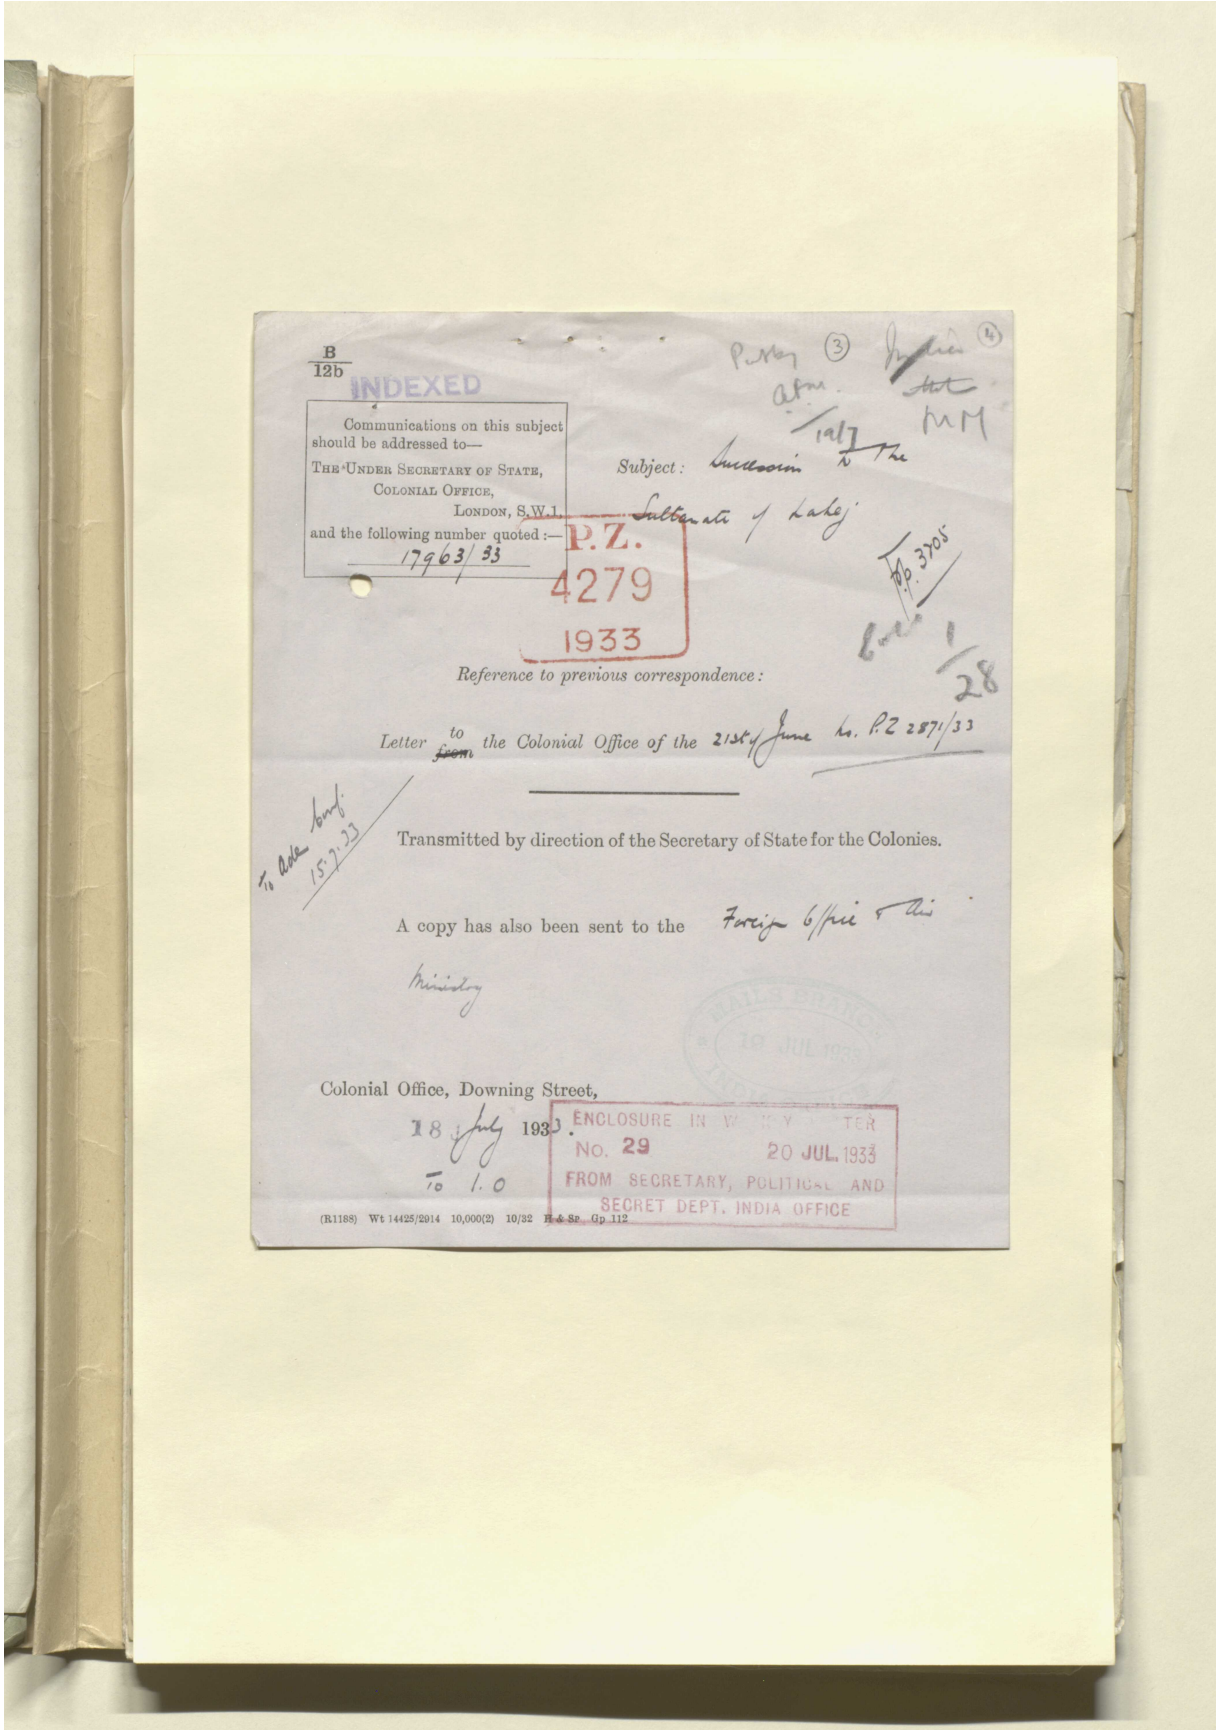 B
12b
INDEXED
3
4
Communications on this subject
should be addressed to—
THE UNDER SECRETARY OF STATE,
COLONIAL OFFICE,
LONDON, S.W.1
and the following number quoted :—
17963/33
19/7
MM
Subject: Succession to the
Sultanate of Lahej
P.Z.
4279
1933
p.p. 3705
1/28
Reference to previous correspondence:
Letter to from the Colonial Office of the 21st of June No. P.Z 2871/33
To Aden Conf.
15.7.33
Transmitted by direction of the Secretary of State for the Colonies.
A copy has also been sent to the Foreign Office & Air
Ministry
MAILS BRANCH
19 JUL 1933
Colonial Office, Downing Street,
18 July 1933.
To I.O
ENCLOSURE IN W K Y TER
No. 29 20 JUL. 1933
FROM SECRETARY, POLITICAL AND
SECRET DEPT. INDIA OFFICE
(R1188) Wt 14425/2914 10,000(2) 10/32 H & SP Gp 112